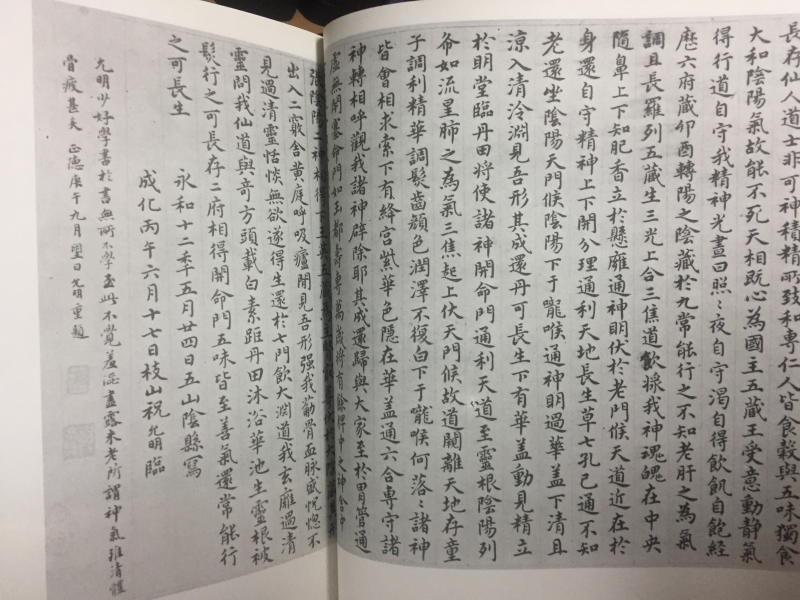 長存仙人道士非可神積精所致和專仁人皆食穀與五味獨食
大和陰陽氣故能不死天相既心為國主五藏王受意動靜氣
得行道自守我精神光晝日照照夜自守渴自得飲飢自飽經
歷六府藏卯酉轉陽之陰藏於九常能行之不知老肝之為氣
調且長羅列五藏生三光上合三焦道飲漿我神魂魄在中央
隨鼻上下知肥香立於懸廱通神明伏於老門候天道近在於
身還自守精神上下開分理通利天地長生草七孔已通不知
老還坐陰陽天門候陰陽下于嚨喉通神明過華蓋下清且
涼入清泠淵見吾形其成還丹可長生下有華蓋動見精立
於明堂臨丹田將使諸神開命門通利天道至靈根陰陽列
布如流星肺之為氣三焦起上伏天門候故道闚離天地存童
子調利精華調髮齒顏色潤澤不復白下于嚨喉何落落諸神
皆會相求索下有絳宮紫華色隱在華蓋通六合專守諸
神轉相呼觀我諸神辟除耶其成還歸與大家至於胃管通
虛無閉塞命門如玉都壽專萬歲將有餘脾中之神舍中
出入二竅舍黃庭呼吸廬間見吾形强我筋骨血脉盛怳惚不
見過清靈恬惔無欲遂得生還於七門飲大淵道我玄廱過清
靈問我仙道與奇方頭載白素距丹田沐浴華池生靈根被
髮行之可長存二府相得開命門五味皆至善氣還常能行
之可長生
永和十二年五月廿四日五山陰縣寫
成化丙午六月十七日枝山祝允明臨
允明少好學書於書無所不學至此不覺羞澁盡露米老所謂神氣雖清體
骨疲甚矣 正德庚午九月望日允明重題